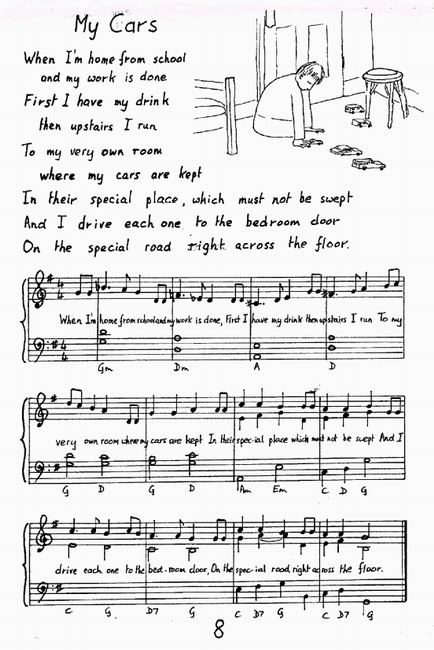 My Cars
When I'm home from school
and my work is done
First I have my drink
then upstairs I run
To my very own room
where my cars are kept
In their special place, which must not be swept
And I drive each one to the bedroom door
On the special road right across the floor.
When I'm home from school and my work is done, First I have my drink then upstairs I run To my
Gm Dm A D
very own room where my cars are kept In their spec-ial place which must not be swept And I
G D G D Am Em C D G
drive each one to the bed-room door, On the spec-ial road right across the floor.
C G D7 G C D7 G C D7 G
8